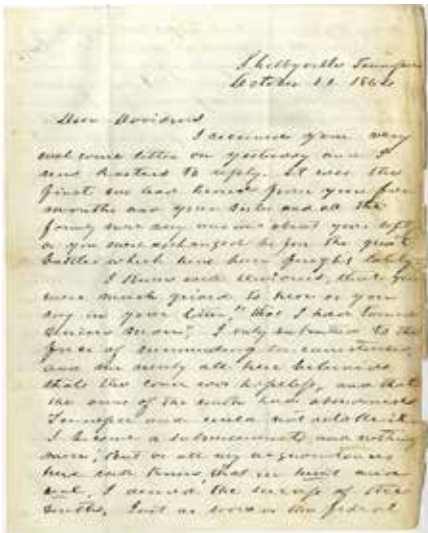 Shelbyville Tennessee
October 11 1862
Dear Davidson
I received your very
welcome letter on yesterday and I
now hasten to reply. it was the
first we had heard from you for
months and your sister and all the
family were very anxious about your safety
as you were exchanged before the great
battles which have been fought lately
I know well that you
were much grieved to hear as you
say in your letter, "that I had turned
Union man". I only submitted to the
force of surrounding circumstances,
and as nearly all here believed
that the cause was hopeless, and that
the arms of the south had abandoned
Tennessee and could not retake it
I became a submissionist and nothing
more; But as all my acquaintances
here well know, that in heart and
soul, I desired the success of the
South, Just as soon as the federal